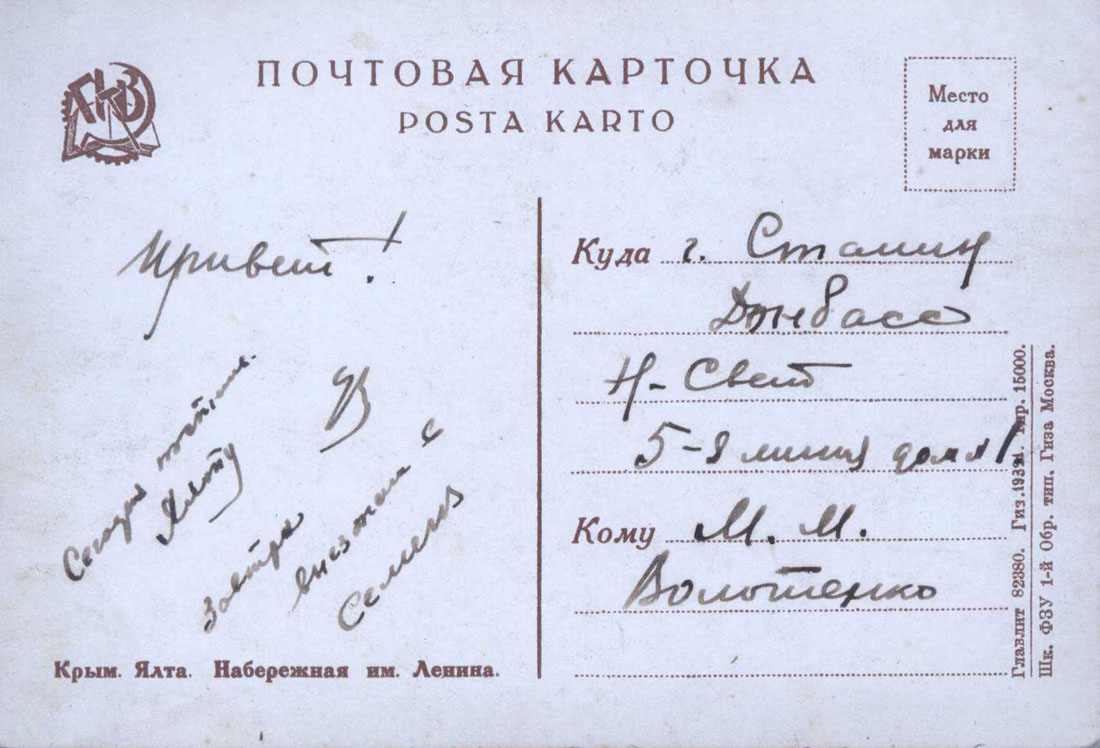 ПОЧТОВАЯ КАРТОЧКА
POSTA KARTO
Место
для
марки
Привет!
Сегодня
Ялту
Завтра
Куда г. Сталин
Донбасс
Н-Свет
5-я линия дом
Кому М. М.
Волотенко
Крым. Ялта. Набережная им. Ленина.
Главлит 82380. Гиз. Тир. 15000.
Шк. ФЗУ 1-й Обр. тип. Гиза Москва.